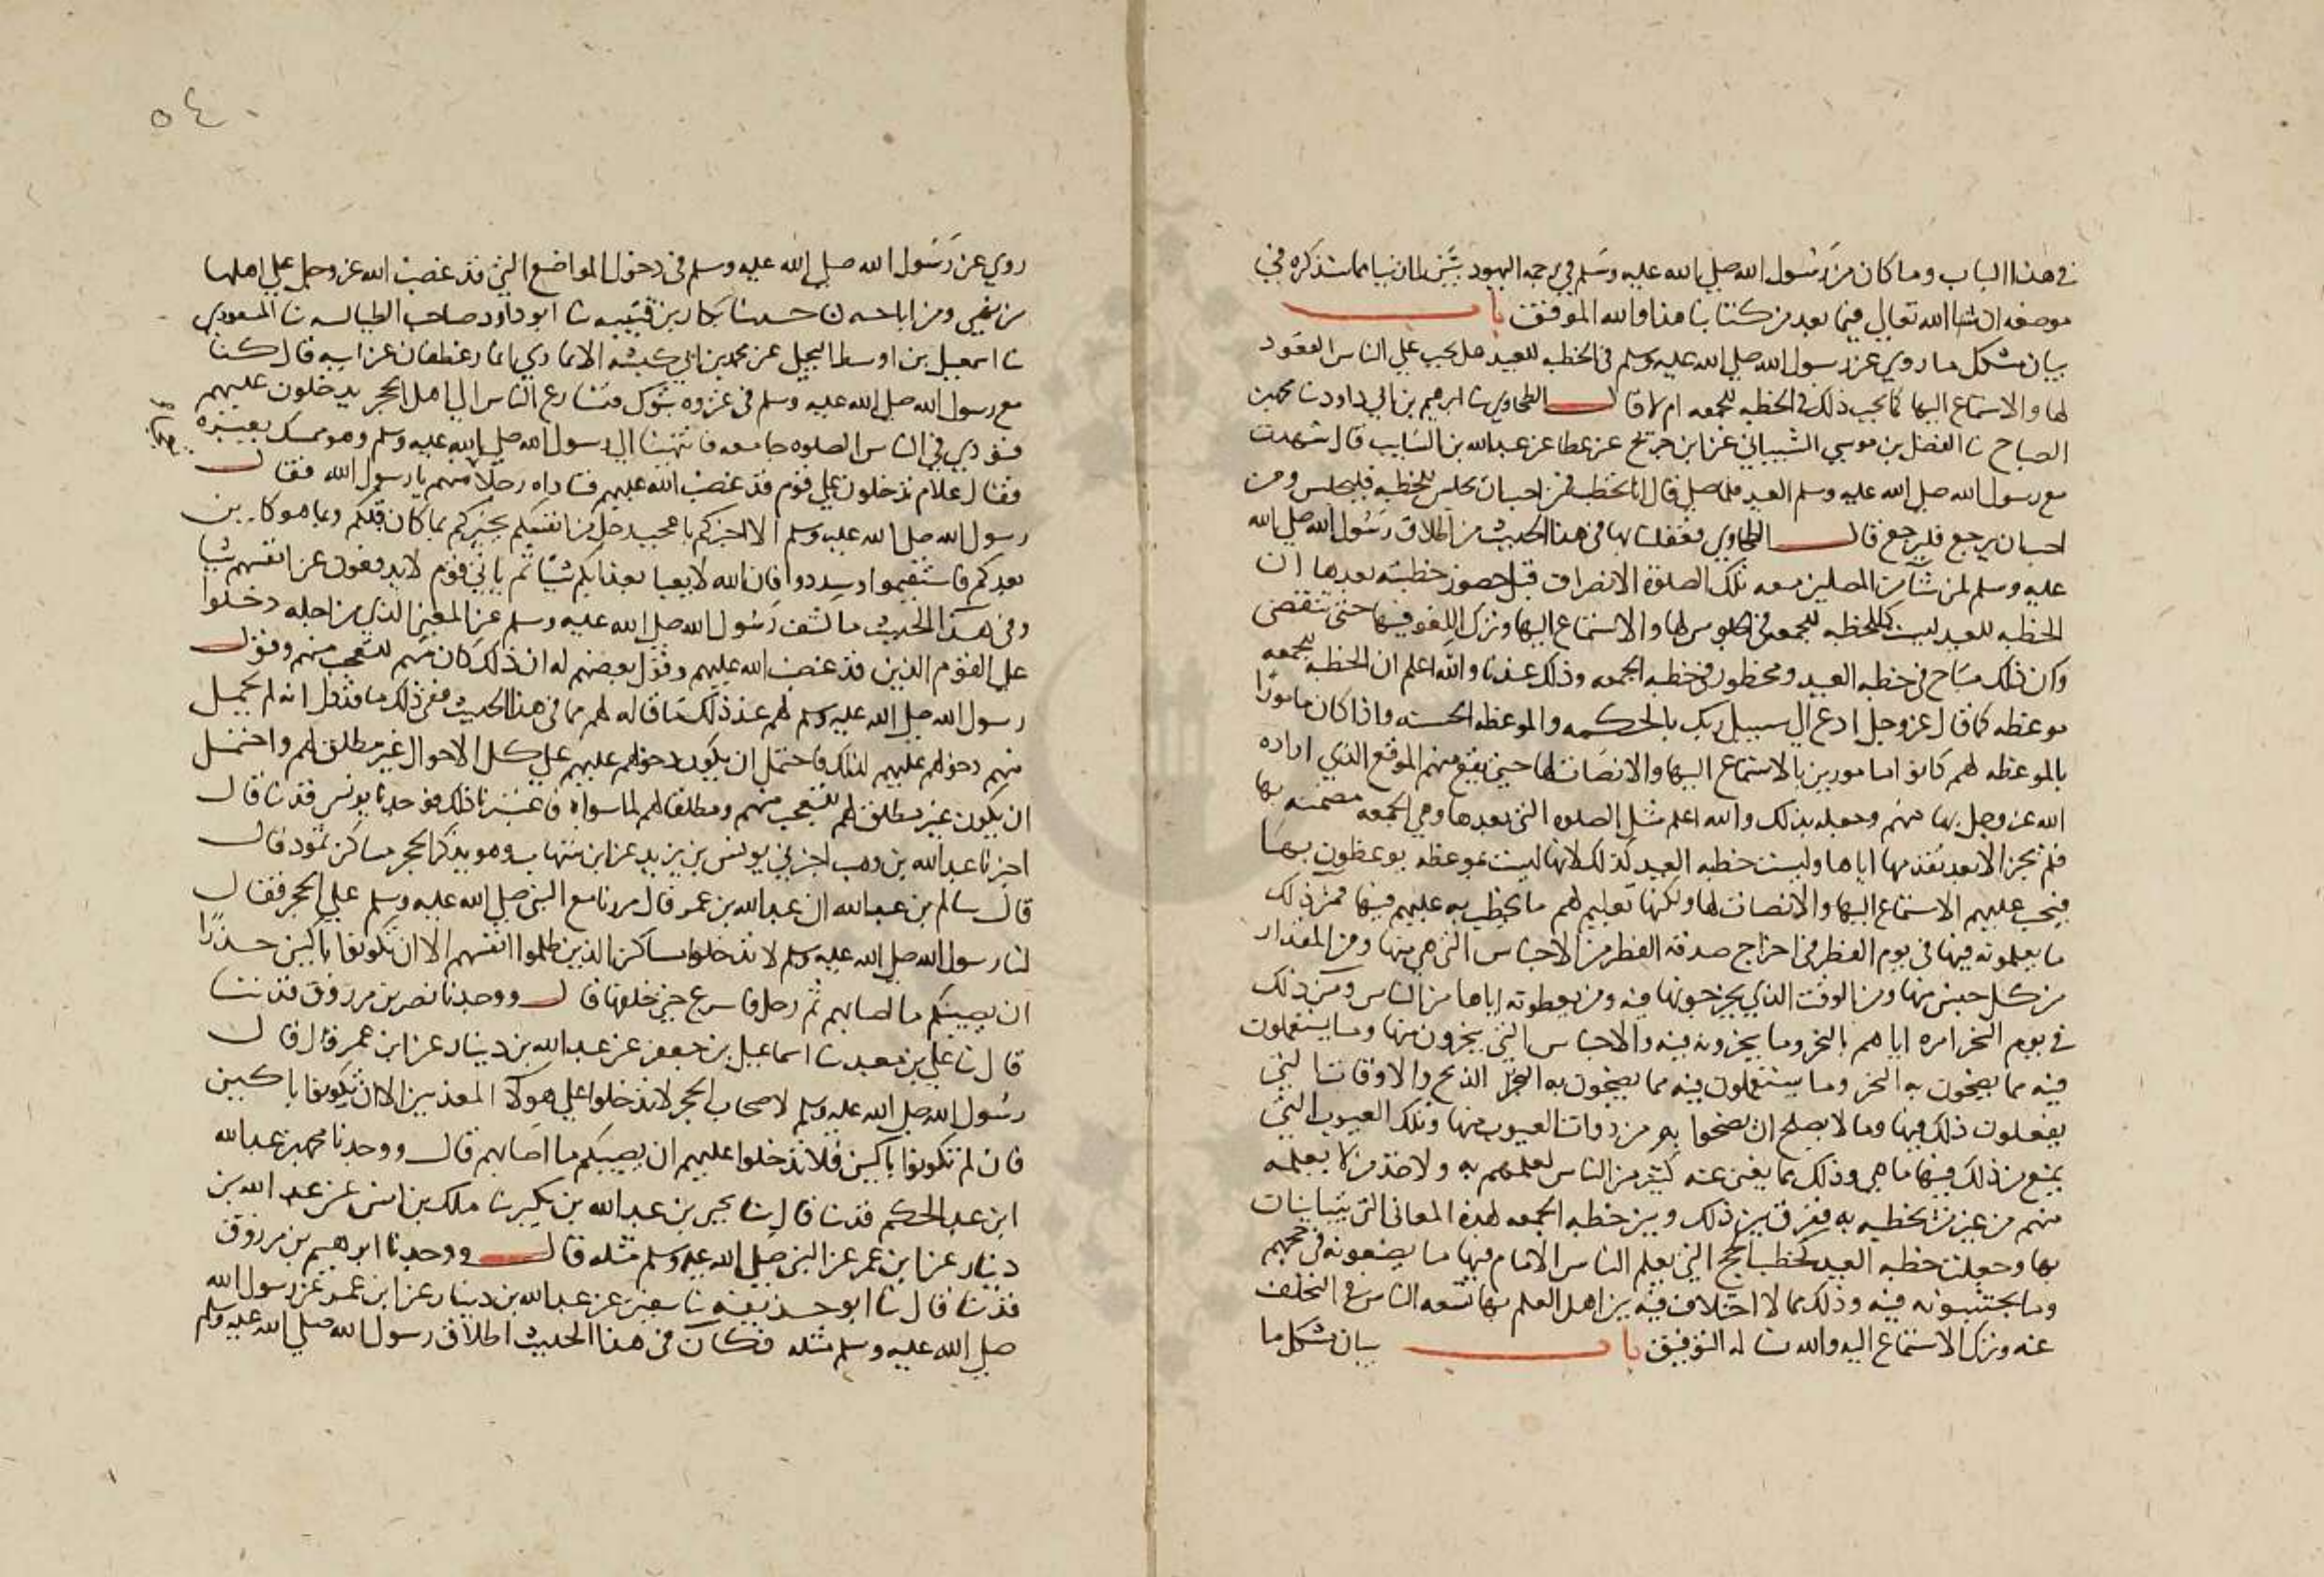 في هذا الباب وما كان من رسول الله صلى الله عليه وسلم في رجمه اليهود بشيئين بيانا مما سنذكره في
موضعه ان شا الله تعالى فيما بعد من كتابنا هذا والله الموفق باب
بيان مشكل ما روي عن رسول الله صلى الله عليه وسلم في الخطبه للعيد هل يجب على الناس القعود
لها والاستماع اليها كما يجب ذلك في الخطبه للجمعه ام لا قال الطحاوي نا ابرهيم بن ابي داود نا محمد بن
الصباح نا الفضل بن موسى الشيباني عن ابن جريج عن عطا عن عبد الله بن السايب قال شهدت
مع رسول الله صلى الله عليه وسلم العيد فلما صلى قال انا نخطب فمن احب ان يجلس للخطبه فليجلس ومن
احب ان يرجع فليرجع قال الطحاوي فعقلنا بها في هذا الحديث من اطلاق رسول الله صلى الله
عليه وسلم لمن شا من المصلين معه تلك الصلوة الانصراف قبل حضور خطبته بعدها ان
الخطبه للعيد ليست كالخطبه للجمعه في الجلوس لها والاستماع اليها وترك اللغو فيها حتى تنقضي
وكان ذلك مباح في خطبه العيد ومحظور في خطبه الجمعه وذلك عندنا والله اعلم ان الخطبه للجمعه
موعظه كما قال عز وجل ادع الى سبيل ربك بالحكمه والموعظه الحسنه واذا كان مامورا
بالموعظه لهم كانوا مامورين بالاستماع اليها والانصات لها حتى تقع منهم الموقع الذي اراده
الله عز وجل بها منهم وجعله بذلك والله اعلم مثل الصلوه التي بعدها وهي الجمعه مضمنه بها
فلم تجز الا بعد تقدمها اياها وليست خطبه العيد كذلك لانها ليست موعظه يوعظون بها
فيجب عليهم الاستماع اليها والانصات لها ولكنها تعليم لهم ما يخطب به عليهم فيها فمن ذلك
ما يعلمونه فيها في يوم الفطر في اخراج صدقه الفطر من الاجناس التي هي منها ومن المقدار
من كل جنس منها ومن الوقت الذي يخرجونها فيه ومن يعطونه اياها من الناس ومن ذلك
في يوم النحر امره اياهم بالنحر وما ينحرونه فيه والاجناس التي ينحرون منها وما يستعملون
فيه مما يضحون به النحر وما يستعملون فيه مما يضحون به الذبح والاوقات التي
يفعلون ذلك فيها وما لا يصلح ان يضحوا به من ذوات العيوب منها وتلك العيوب التي
يمنع من ذلك فيها ما هي وذلك مما يغني عنه كثير من الناس لعلمهم به ولاخذ من لا يعلمه
منهم من غير من يخطب به ففرق بين ذلك وبين خطبه الجمعه لهذه المعاني التي يتباينان
بها وجعلت خطبه العيد كخطب الحج التي يعلم الناس الامام فيها ما يصنعونه في حجهم
وما يجتنبونه فيه وذلك مما لا اختلاف فيه بين اهل العلم بها تسعه الناس في التخلف
عنه وترك الاستماع اليه والله نساله التوفيق باب بيان مشكل ما
٥٤٠
روي عن رسول الله صلى الله عليه وسلم في دخول المواضع التي قد غضب الله عز وجل على اهلها
من نهي ومن اباحه حدثنا بكار بن قتيبه نا ابو داود صاحب الطيالسه نا المسعودي
نا اسمعيل بن اوسط البجلي عن محمد بن ابي كبشه الانماري انمار غطفان عن ابيه قال كنا
مع رسول الله صلى الله عليه وسلم في غزوه تبوك فتسارع الناس الى اهل الحجر يدخلون عليهم
فنودي في الناس الصلوه جامعه فانتهينا الى رسول الله صلى الله عليه وسلم وهو ممسك بعيره
فقال علام تدخلون على قوم قد غضب الله عليهم فناداه رجلا منهم يا رسول الله فقال
رسول الله صلى الله عليه وسلم الا اخبركم باعجب رجل من انفسكم يخبركم بما كان قبلكم وبما هو كاين
بعدكم فاستقيموا وسددوا فان الله لا يعبا بعذابكم شيا ثم ياتي قوم لا يدفعون عن انفسهم شيا
وفي هذا الحديث ما كشف رسول الله صلى الله عليه وسلم عن المعنى الذي من اجله دخلوا
على القوم الذين قد غضب الله عليهم وقول بعضهم له ان ذلك كان منهم للتعجب منهم وقول
رسول الله صلى الله عليه وسلم لهم عند ذلك ما قاله لهم مما في هذا الحديث ففي ذلك ما قد دل انه لم يحمل
منهم دخولهم عليهم لذلك فاحتمل ان يكون دخولهم عليهم على كل الاحوال غير مطلق لهم واحتمل
ان يكون غير مطلق لهم للتعجب منهم ومطلقا لهم لما سواه فاعتبرنا ذلك فوجدنا يونس قد نا قال
اخبرنا عبد الله بن وهب اخبرني يونس بن يزيد عن ابن شهاب وهو يذكر الحجر مساكن ثمود قال
قال سالم بن عبد الله ان عبد الله بن عمر قال مررنا مع النبي صلى الله عليه وسلم على الحجر فقال
لنا رسول الله صلى الله عليه وسلم لا تدخلوا مساكن الذين ظلموا انفسهم الا ان تكونوا باكين حذرا
ان يصيبكم ما اصابهم ثم رحل فاسرع حتى خلفها قال ووجدنا نصر بن مرزوق قد نا
قال نا علي بن معبد نا اسماعيل بن جعفر عن عبد الله بن دينار عن ابن عمر قال قال
رسول الله صلى الله عليه وسلم لاصحاب الحجر لا تدخلوا على هولا المعذبين الا ان تكونوا باكين
فان لم تكونوا باكين فلا تدخلوا عليهم ان يصيبكم ما اصابهم قال ووجدنا محمد بن عبد الله
ابن عبد الحكم قد نا قال نا يحيى بن عبد الله بن بكير نا ملك بن انس عن عبد الله بن
دينار عن ابن عمر عن النبي صلى الله عليه وسلم مثله قال ووجدنا ابرهيم بن مرزوق
قد نا قال نا ابو حذيفه نا سفين عن عبد الله بن دينار عن ابن عمر عن رسول الله
صلى الله عليه وسلم مثله فكان في هذا الحديث اطلاق رسول الله صلى الله عليه وسلم